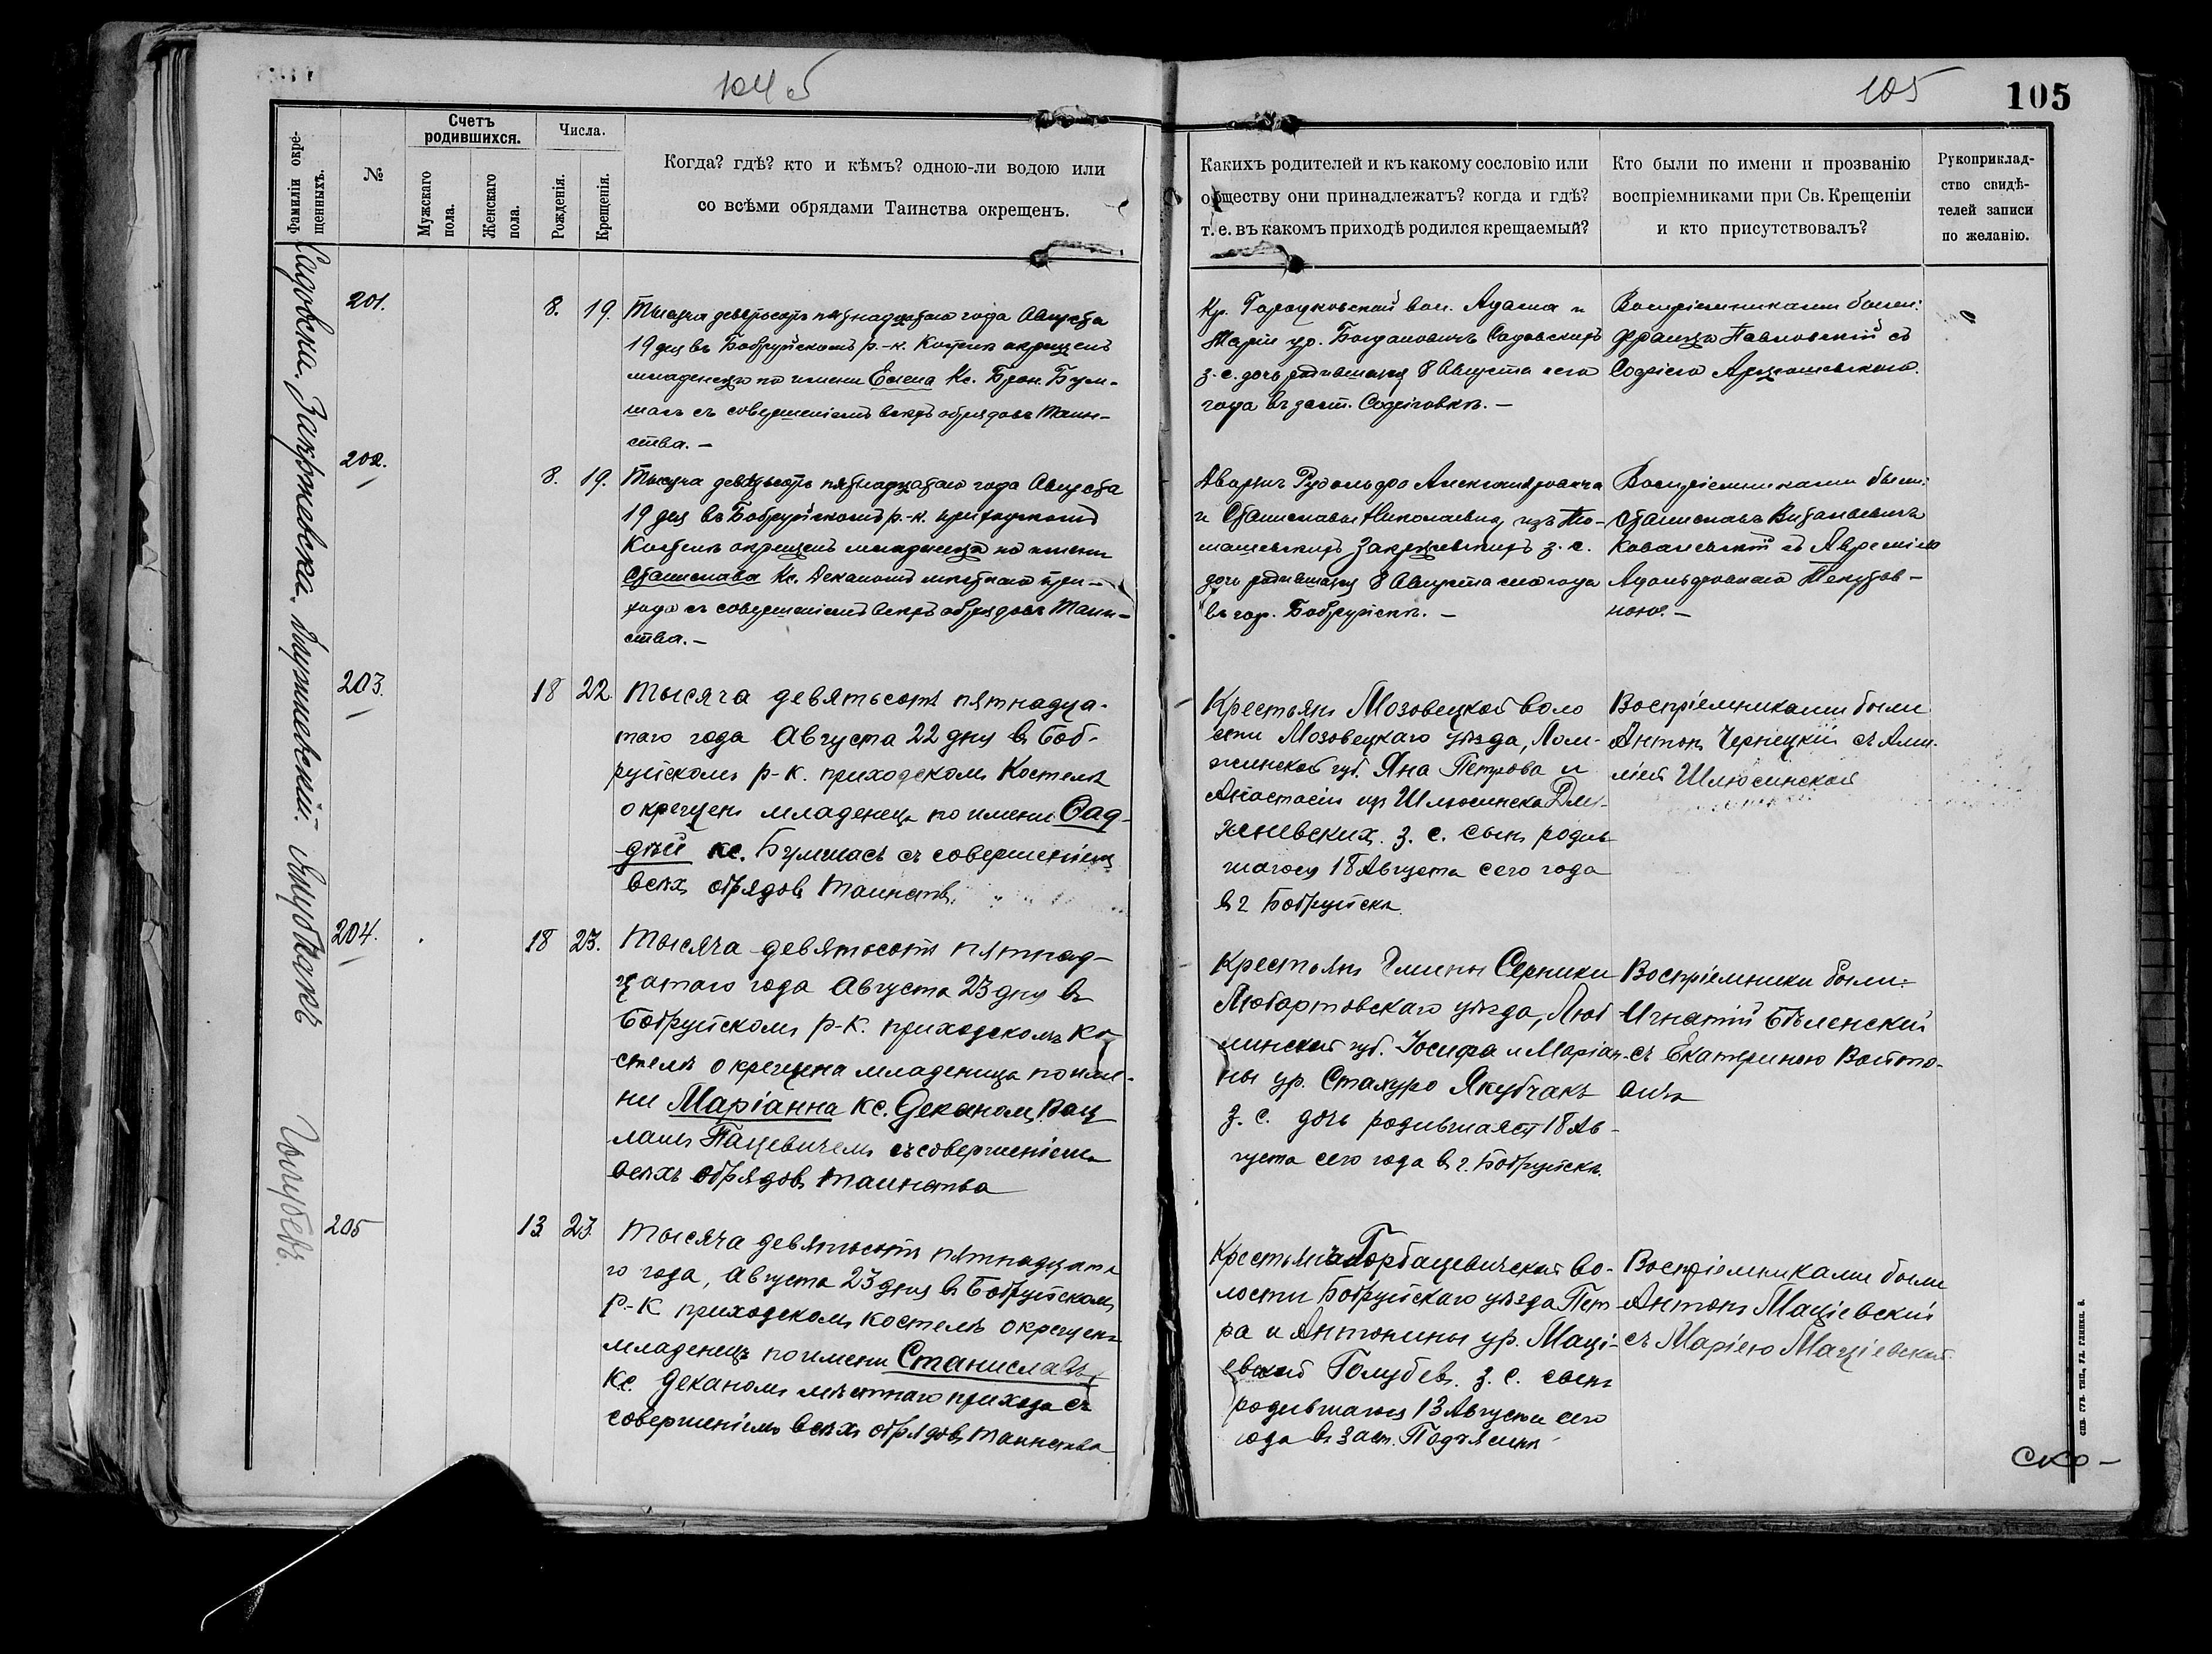 104 об
105
105
Фамиліи окре-
щенныхъ.
№
Счетъ
родившихся.
Мужскаго
пола.
Женскаго
пола.
Числа.
Рожденія.
Крещенія.
Когда? гдѣ? кто и кѣмъ? одною-ли водою или
со всѣми обрядами Таинства окрещенъ.
Какихъ родителей и къ какому сословію или
обществу они принадлежатъ? когда и гдѣ?
т. е. въ какомъ приходѣ родился крещаемый?
Кто были по имени и прозванію
воспріемниками при Св. Крещеніи
и кто присутствовалъ?
Рукоприклад-
ство свидѣ-
телей записи
по желанію.
Садовска.
201.
8. 19.
Тысяча девятьсотъ пятнадцатаго года Августа
19 дня въ Бобруйскомъ р.-к. Костелѣ окрещенъ
младенецъ по имени Елена Кс. Брон. Бул-
шасъ съ совершеніемъ всѣхъ обрядовъ Таин-
ства. —
Кр. вол. Адама и
Маріи ур. Богдановичъ Садовскихъ
з. с. дочь родившаяся 8 Августа сего
года въ заст. Софіовкѣ. —
Воспріемниками были:
Францъ Павловскій съ
Софіею
Закржевска.
202.
8. 19.
Тысяча девятьсотъ пятнадцатаго года Августа
19 дня въ Бобруйскомъ р.-к. приходскомъ
Костелѣ окрещенъ младенецъ по имени
Станислава Кс. Деканомъ мѣстнаго при-
хода съ совершеніемъ всѣхъ обрядовъ Таин-
ства. —
Дворянъ Рудольфа Александровича
и Станиславы Николаевны изъ То-
машевскихъ Закржевскихъ з. с.
дочь родившаяся 8 Августа сего года
въ гор. Бобруйскѣ. —
Воспріемниками были:
Станиславъ Витальевичъ
Ковалевскій съ
Адольфовною
ною. —
203.
18 22.
Тысяча девятьсотъ пятнадца-
таго года Августа 22 дня въ Боб-
руйскомъ р-к. приходскомъ Костелѣ
окрещенъ младенецъ по имени Фад-
дѣй кс. Булшасъ съ совершеніемъ
всѣхъ обрядовъ таинств.
Крестьянъ Мозовецкой воло
сти Мозовецкаго уѣзда, Лом-
жинской губ. Яна Петрова и
Анастасіи ур Шлюсинска Длу-
жневских. з. с. сынъ родив
шагося 18 Августа сего года
въ г Бобруйскѣ.
Воспріемниками были
Антонъ Чернецкій съ Ами-
ліей Шлюсинской
Якубчакъ
204.
18 23.
Тысяча девятьсотъ пятнад-
цатаго года Августа 23 дня въ
Бобруйскомъ р-к. приходскомъ ко-
стелѣ окрещена младеница по име-
ни Маріанна кс. Деканом Вац
лавъ Пацевичемъ съ совершеніемъ
всѣхъ обрядовъ таинства
Крестьянъ Гмины Серники
Любартовскаго уѣзда, Люб
линской губ. Іосифа и Маріан-
ны ур. Стахуро Якубчакъ
з. с. дочь родившаяся 18 Ав-
густа сего года въ г. Бобруйскѣ.
Воспріемники были:
Игнатій Бѣленскій
съ Екатериною Войто-
вичъ
Голубевъ.
205
13 23.
Тысяча девятьсотъ пятнадцата
го года, Августа 23 дня въ Бобруйскомъ
р-к приходскомъ костелѣ окрещенъ
младенецъ по имени Станиславъ
кс. Деканомъ мѣстнаго прихода съ
совершеніемъ всѣхъ обрядовъ таинства
Крестьянъ Горбацевичской во-
лости Бобруйскаго уѣзда Пет
ра и Антонины ур. Маці-
евской Голубев. з. с. сынъ
родившагося 13 Августа сего
года въ заст.
Воспріемниками были
Антонъ Маціевскій
съ Маріею Маціевской
СПБ. ГУБ. ТИП., УЛ. ГЛИНКИ, 8.